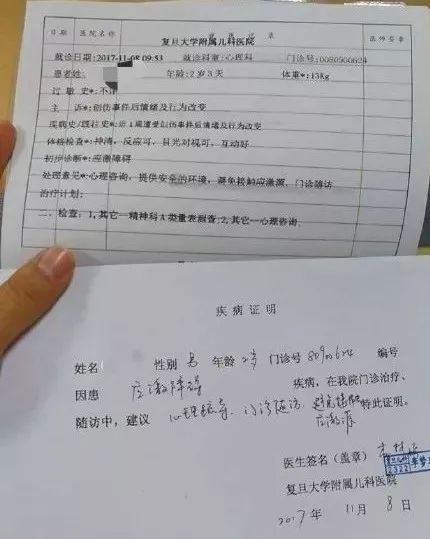 日期 医院名称 记录 医师签章
复旦大学附属儿科医院
就诊日期:2017-11-08 09:53 就诊科室:心理科 门诊号 0080900624
患者姓 年龄:2岁3天 体重*:13Kg
过敏史*:不详
主 诉*:创伤事件后情绪及行为改变
疾病史/既往史*:近1周遭受创伤事件后情绪及行为改变
体格检查*:神清,反应可,目光对视可,互动好
初步诊断*:应激障碍
处理意见*:心理咨询,提供安全的环境,避免接触应激源,门诊随访
治疗计划:
二、检查:1,其它--精神科A类量表测查;2,其它--心理咨询
疾病证明
姓名 性别 男 年龄 2岁 门诊号 80900624 编号
因患 应激障碍 疾病,在我院门诊治疗、
随访中,建议 心理疏导、门诊随访、避免接触应激源 特此证明。
医生签名(盖章)
复旦大学附属儿科医院
2017 年 11 月 8 日